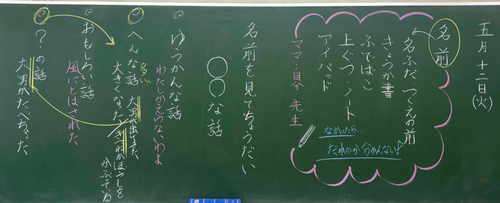 五月十二日(火)
名前
名ふだ つくえの前
きょうか書
ふでばこ
上ぐつ ノート
アイパッド
ママ・自分 先生
なかったら…
だれのか分かんない!
名前を見てちょうだい
○○な話
ゆうかんな話
わたしからのないわよ
へんな話 大男が出てきた
多い
大きくなった
ぼうしを
かぶっている
おもしろい話
風にとばされた
?の話
大男がたべちゃった